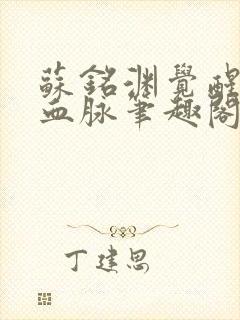 蘇銘淵覺醒
血脈筆趣閣
丁建思